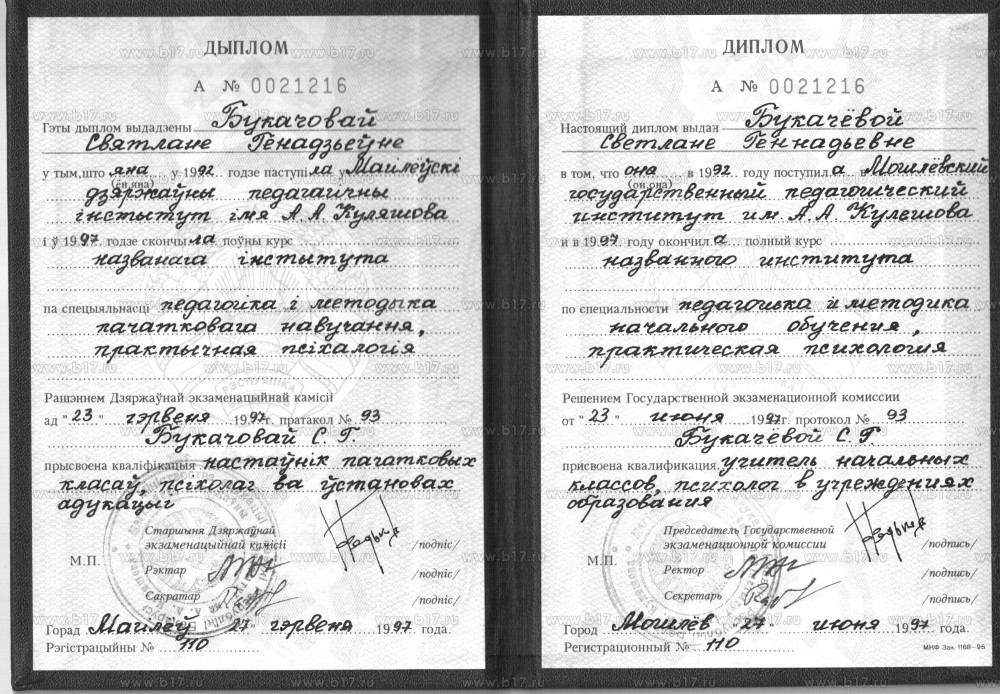 ДЫПЛОМ
А № 0021216
Гэты дыплом выдадзены Букачовай
Святлане Генадзьеўне
у тым, што яна у 1992 годзе паступіла у Магілёўскі
(ён, яна)
дзяржаўны педагагічны
інстытут імя А. А. Куляшова
і ў 1997 годзе скончыла поўны курс
названага інстытута
па спецыяльнасці педагогіка і методыка
пачатковага навучання,
практычная псіхалогія
РЭСПУБЛІКА
Рашэннем Дзяржаўнай экзаменацыйнай камісіі
ад "23" чэрвеня 1997г. пратакол № 93
Букачовай С. Г.
прысвоена кваліфікацыя настаўнік пачатковых
класаў, псіхолаг ва ўстановах
адукацыі
Старшыня Дзяржаўнай
экзаменацыйнай камісіі /подпіс/
М.П.
Рэктар /подпіс/
Сакратар /подпіс/
Горад Магілёў "27" чэрвеня 1997 года.
Рэгістрацыйны № 110
ДИПЛОМ
А № 0021216
Настоящий диплом выдан Букачёвой
Светлане Геннадьевне
в том, что она в 1992 году поступила в Могилёвский
(он, она)
государственный педагогический
институт им. А. А. Кулешова
и в 1997 году окончила полный курс
названного института
по специальности педагогика и методика
начального обучения,
практическая психология
Решением Государственной экзаменационной комиссии
от "23" июня 1997г. протокол № 93
Букачёвой С. Г
присвоена квалификация учитель начальных
классов, психолог в учреждениях
образования
Председатель Государственной
экзаменационной комиссии /подпись/
М.П.
Ректор /подпись/
Секретарь /подпись/
Город Могилёв "27" июня 1997 года.
Регистрационный № 110
МНФ Зак. 1168-95
www.b17.ru